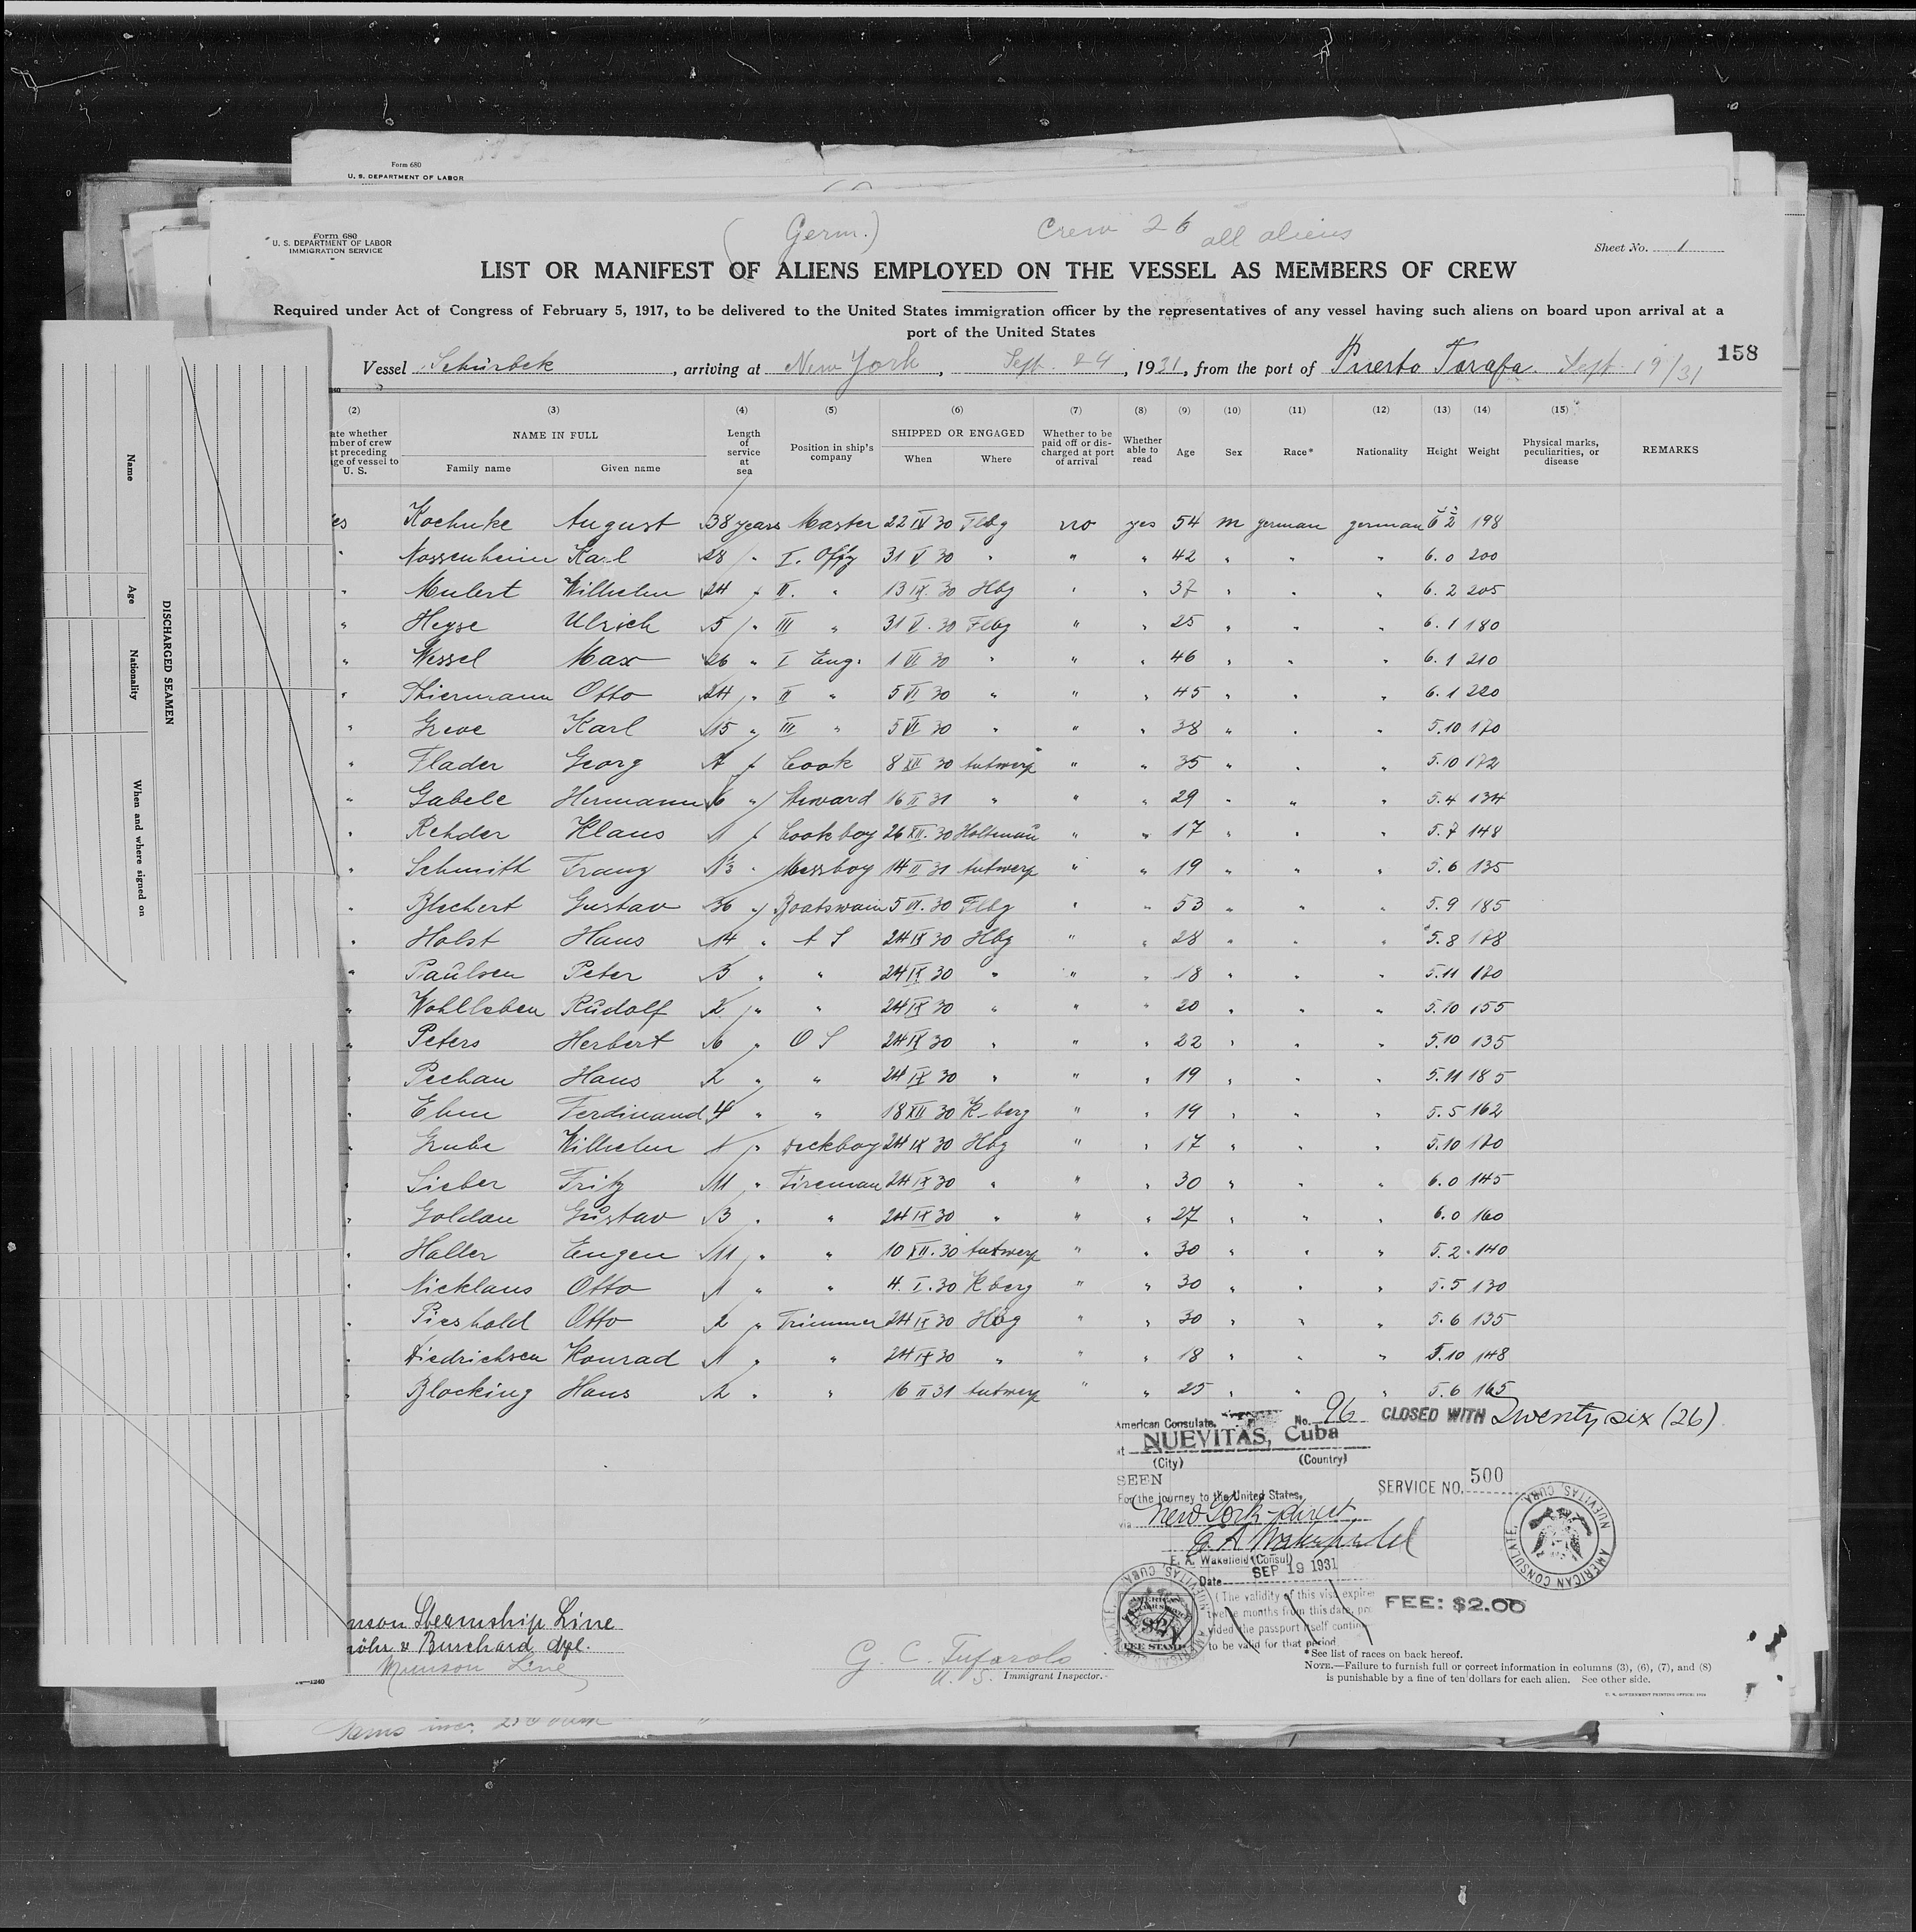 Form 680
U. S. DEPARTMENT OF LABOR
Form 680
U. S. DEPARTMENT OF LABOR
IMMIGRATION SERVICE
(Germ.)
Crew 26 all aliens
Sheet No. 1
LIST OR MANIFEST OF ALIENS EMPLOYED ON THE VESSEL AS MEMBERS OF CREW
Required under Act of Congress of February 5, 1917, to be delivered to the United States immigration officer by the representatives of any vessel having such aliens on board upon arrival at a
port of the United States
158
Vessel Schürbek, arriving at New York, Sept. 24, 1931, from the port of Puerto Tarafa. Sept 19/31
(2) (3) (4) (5) (6) (7) (8) (9) (10) (11) (12) (13) (14) (15)
ate whether
mber of crew
st preceding
age of vessel to
U. S.
NAME IN FULL
Family name Given name
Length
of
service
at
sea
Position in ship's
company
SHIPPED OR ENGAGED
When Where
Whether to be
paid off or dis-
charged at port
of arrival
Whether
able to
read
Age
Sex
Race*
Nationality
Height
Weight
Physical marks,
peculiarities, or
disease
REMARKS
es Kochnke August 38 years Master 22 IV 30 Flbg no yes 54 m german german 6 2 198
" Nossenheim Karl 28 " I. Offz 31 V 30 " " " 42 " " " 6. 0 200
" Mulert Wilhelm 24 " II. " 13 IX. 30 Hbg " " 37 " " " 6. 2 205
" Heyse Ulrich 5 " III " 31 V. 30 Flbg " " 25 " " " 6. 1 180
" Wessel Max 26 " I Eng. 1 VI 30 " " " 46 " " " 6. 1 210
" Thiermann Otto 24 " II " 5 VI 30 " " " 45 " " " 6. 1 220
" Greve Karl 15 " III " 5 VI 30 " " " 38 " " " 5.10 170
" Flader Georg 1 " Cook 8 XII 30 Antwerp " " 35 " " " 5.10 172
" Gabele Hermann 6 " Steward 16 II 31 " " " 29 " " " 5.4 134
" Rehder Klaus 1 " Cookboy 26 XII. 30 Holtenau " " 17 " " " 5.7 148
" Schmith Franz 3 " Messboy 14 II 31 Antwerp " " 19 " " " 5.6 135
" Blechert Gustav 36 " Boatswain 5 VI. 30 Flbg " " 53 " " " 5.9 185
" Holst Hans 14 " A S 24 IX 30 Hbg " " 28 " " " 5.8 178
" Paulsen Peter 3 " " 24 IX 30 " " " 18 " " " 5.11 170
" Wohlleben Rudolf 2 " " 24 IX 30 " " " 20 " " " 5.10 155
" Peters Herbert 6 " O S 24 IX 30 " " " 22 " " " 5.10 135
" Pechau Hans 2 " " 24 IX 30 " " " 19 " " " 5.11 185
" Ehm Ferdinand 4 " " 18 XII 30 K-berg " " 19 " " " 5.5 162
" Grube Wilhelm 1 " deckboy 24 IX 30 Hbg " " 17 " " " 5.10 170
" Sieber Fritz 11 " Fireman 24 IX 30 " " " 30 " " " 6.0 145
" Goldau Gustav 3 " " 24 IX 30 " " " 27 " " " 6.0 160
" Haller Eugen 11 " " 10 XII. 30 Antwerp " " 30 " " " 5.2 140
" Nicklaus Otto 1 " " 4. I. 30 Kberg " " 30 " " " 5.5 130
" Pieshold Otto 2 " Trimmer 24 IX 30 Hbg " " 30 " " " 5.6 135
" Diedrichsen Konrad 1 " " 24 IX 30 " " " 18 " " " 5.10 148
" Blocking Hans 2 " " 16 II 31 Antwerp " " 25 " " " 5.6 165
American Consulate, No. 96
at NUEVITAS, Cuba
(City) (Country)
SEEN
For the journey to the United States,
via New York direct
E. A. Wakefield
E. A. Wakefield (Consul)
Date SEP 19 1931
(The validity of this visa expires
twelve months from this date, pro
vided the passport itself contin
to be valid for that period
CLOSED WITH Twenty six (26)
SERVICE NO. 500
AMERICAN CONSULATE, NUEVITAS, CUBA.
FEE: $2.00
AMERICAN CONSULATE, NUEVITAS, CUBA.
$2
FEE STAMP
nson Steamship Line
röhr & Burchard dpl.
Munson Line
G. C. Tufarolo
U. S. Immigrant Inspector.
*See list of races on back hereof.
NOTE.—Failure to furnish full or correct information in columns (3), (6), (7), and (8)
is punishable by a fine of ten dollars for each alien. See other side.
U. S. GOVERNMENT PRINTING OFFICE
—1240
Name
Age
Nationality
When and where signed on
DISCHARGED SEAMEN